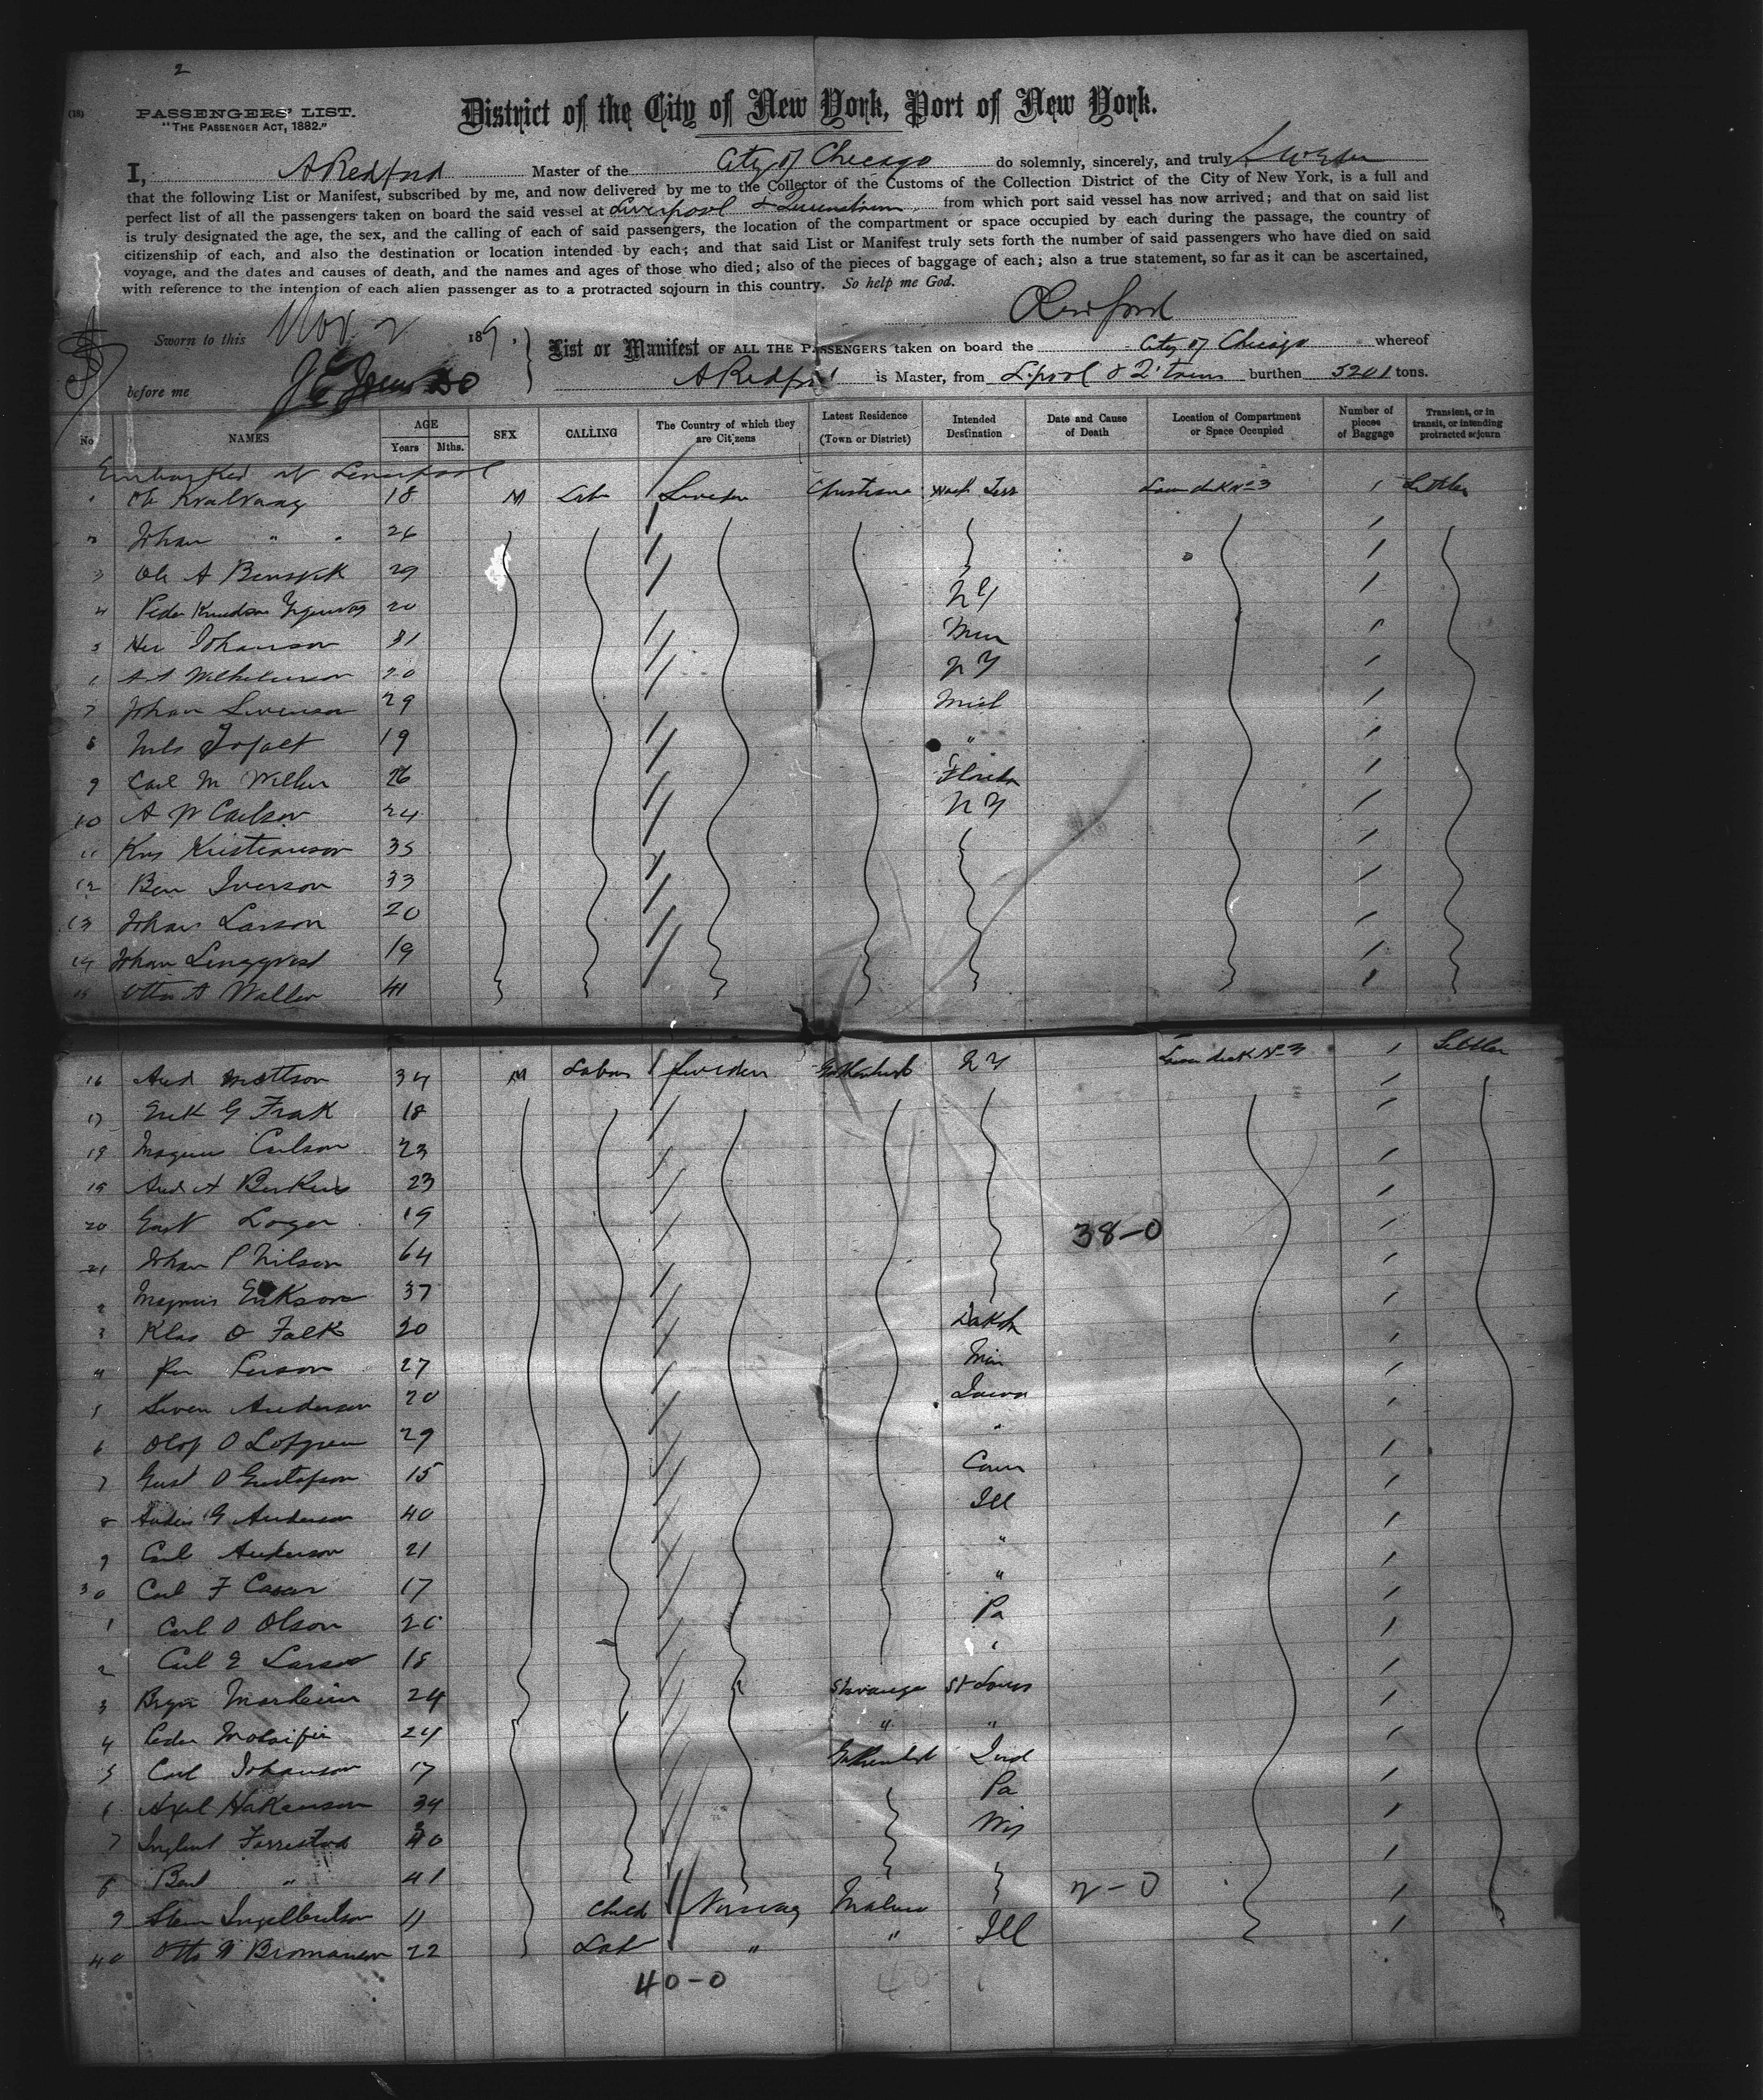 2
(18)
PASSENGERS' LIST.
"THE PASSENGER ACT, 1882."
District of the City of New York, Port of New York.
I, A Redford Master of the City of Chicago do solemnly, sincerely, and truly Swear
that the following List or Manifest, subscribed by me, and now delivered by me to the Collector of the Customs of the Collection District of the City of New York, is a full and
perfect list of all the passengers taken on board the said vessel at Liverpool & Queenstown from which port said vessel has now arrived; and that on said list
is truly designated the age, the sex, and the calling of each of said passengers, the location of the compartment or space occupied by each during the passage, the country of
citizenship of each, and also the destination or location intended by each; and that said List or Manifest truly sets forth the number of said passengers who have died on said
voyage, and the dates and causes of death, and the names and ages of those who died; also of the pieces of baggage of each; also a true statement, so far as it can be ascertained,
with reference to the intention of each alien passenger as to a protracted sojourn in this country. So help me God.
A Redford
Sworn to this Nov 2 188
before me
List or Manifest OF ALL THE PASSENGERS taken on board the City of Chicago whereof
A Redford is Master, from L'pool & Q'town burthen 5201 tons.
No NAMES AGE Years Mths. SEX CALLING The Country of which they are Citizens Latest Residence (Town or District) Intended Destination Date and Cause of Death Location of Compartment or Space Occupied Number of pieces of Baggage Transient, or in transit, or intending protracted sojourn
Embarked at Liverpool
1 Ole Kvalvaag 18 M Lab Sweden Christiana Wash Terr 1 Settler
2 Johan " " 26 /
3 Ole A 29 /
4 Peder Knudson 20 NY /
5 Johanson 31 Min /
6 Wilhelmson 20 NY /
7 Johan Swenson 29 Mich /
8 Nils 19 " /
9 Carl M 26 Florida /
10 A W Carlson 24 NY /
11 Kris Kristianson 35 /
12 Ben Iverson 33 /
13 Johan Larson 20 /
14 Johan Lingqvist 19 /
15 Otto A Wallin 41 /
16 And Mattson 34 M Labor Sweden Gothenburg NY 1 Settler
17 Erik G Frak 18 /
18 Magnus Carlson 23 /
19 And A 23 /
20 Gust 19 38-0 /
21 Johan P Nilson 64 /
2 Magnus Erikson 37 /
3 Klas O Falk 20 Dakota /
4 Per Person 27 Min /
5 Swen Anderson 20 Iowa /
6 Olof O Lofgren 29 " /
7 Gust O Gustafson 15 Conn /
8 Anders G Anderson 40 Ill /
9 Carl Anderson 21 " /
30 Carl F 17 " /
1 Carl O Olson 26 Pa /
2 Carl E Larson 18 " /
3 24 Stavanger St Louis /
4 Peder 24 " " /
5 Carl Johanson 17 Gothenburg Ind /
6 Axel Hakanson 34 Pa /
7 40 Wis /
8 " 41 2-0 /
9 11 Child Norway Malmo /
40 Otto W Bromanson 22 Lab " " Ill /
40-0